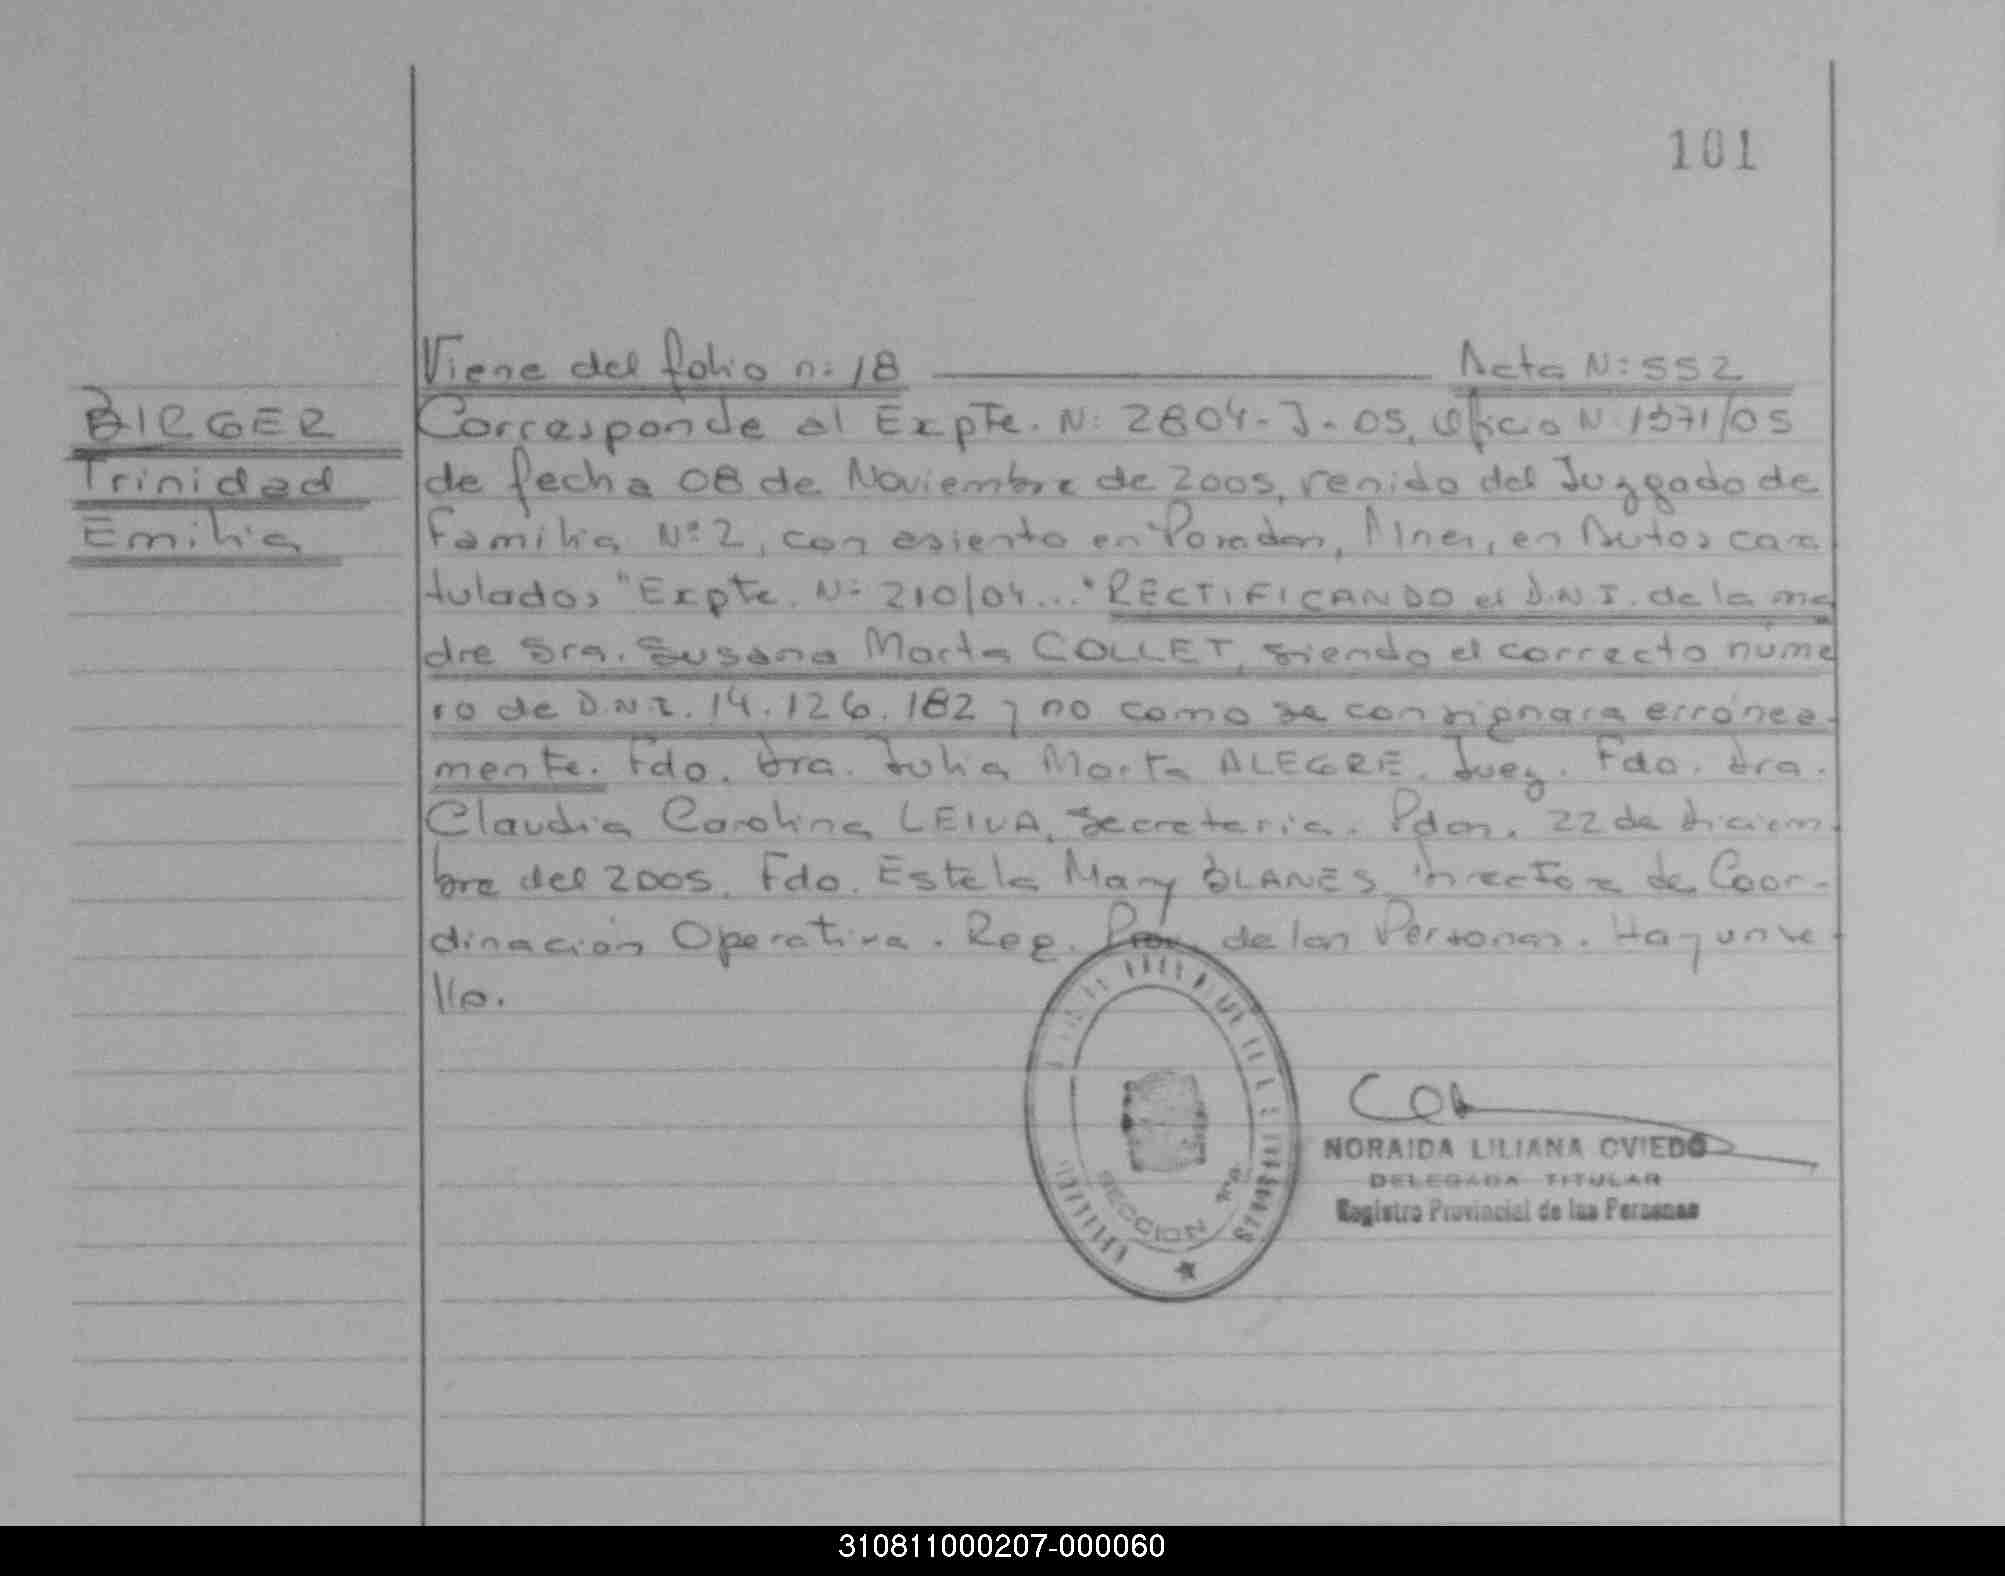 101
Viene del folio n: 18 Acta N: 552
BIRGER
Trinidad
Emilia
Corresponde al Expte. N: 2804-J-05, Oficio N 1371/05
de fecha 08 de Noviembre de 2005, venido del Juzgado de
Familia Nº 2, con asiento en Posadas, Mnes, en Autos cara
tulados "Expte. N: 210/04..." RECTIFICANDO el D.N.I. de la ma
dre Sra. Susana Marta COLLET, siendo el correcto núme
ro de D.N.I. 14.126.182 y no como se consignara errónea-
mente. Fdo. Dra. Julia Marta ALEGRE. Juez. Fdo. Dra.
Claudia Carolina LEIVA, Secretaria. Pdas. 22 de diciem-
bre del 2005. Fdo. Estela Mary BLANES Directora de Coor-
dinación Operativa. Reg. Prov. de las Personas. Hay un se-
llo.
SECCION
NORAIDA LILIANA OVIEDO
DELEGADA TITULAR
Registro Provincial de las Personas
310811000207-000060